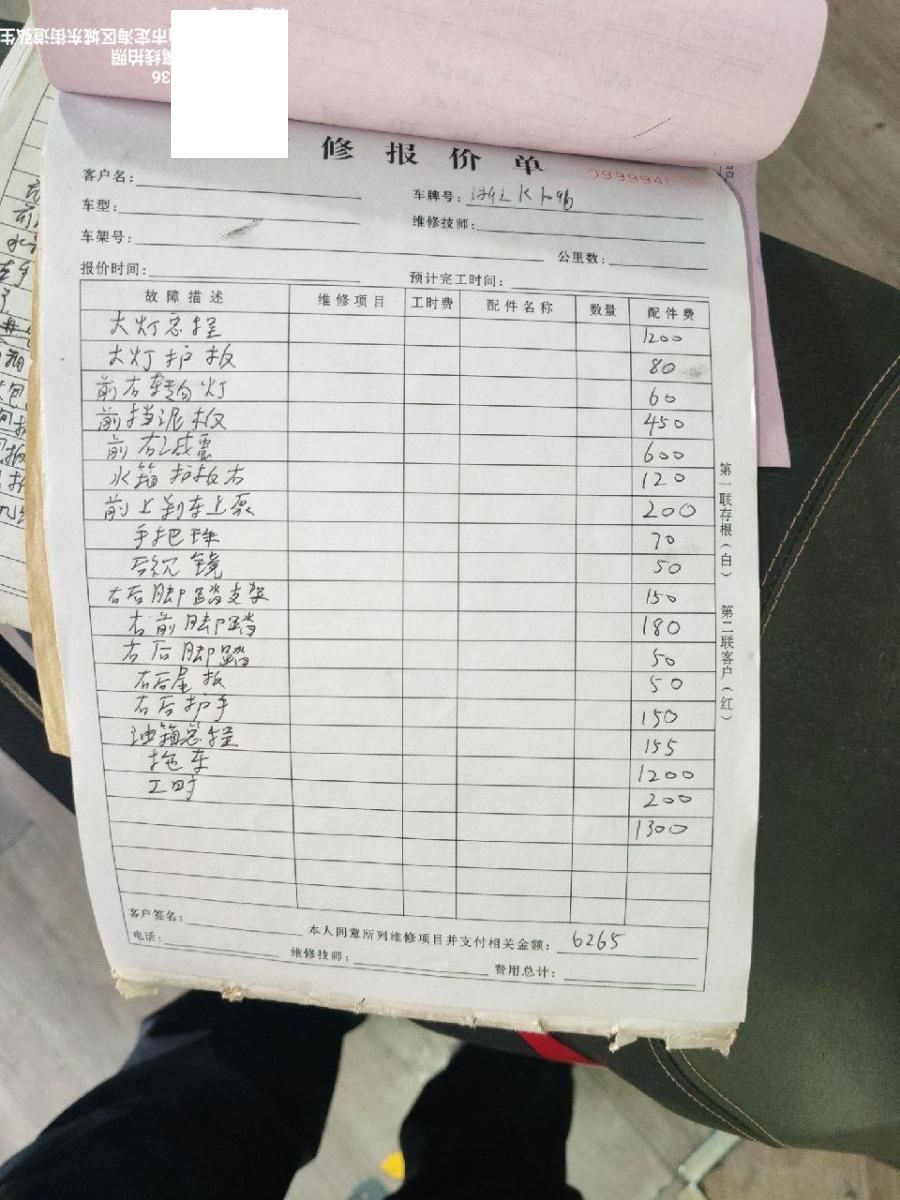 市定海区城东街道弘生
离线拍照
36
修报价单
099994
客户名：
车牌号：浙L K
车型：
维修技师：
车架号：
公里数：
报价时间：
预计完工时间：
故障描述 维修项目 工时费 配件名称 数量 配件费
大灯总程 1200
大灯护板 80
前右转向灯 60
前挡泥板 450
前右减震 600
水箱护板右 120
前上刹车上泵 200
手把珠 70
后视镜 50
右后脚踏支架 150
右前脚踏 180
右后脚踏 50
右后尾板 50
右后护手 150
油箱总程 155
拖车 1200
工时 200
1300
第一联存根（白） 第二联客户（红）
客户签名：
本人同意所列维修项目并支付相关金额：6265
电话：
维修技师：
费用总计：